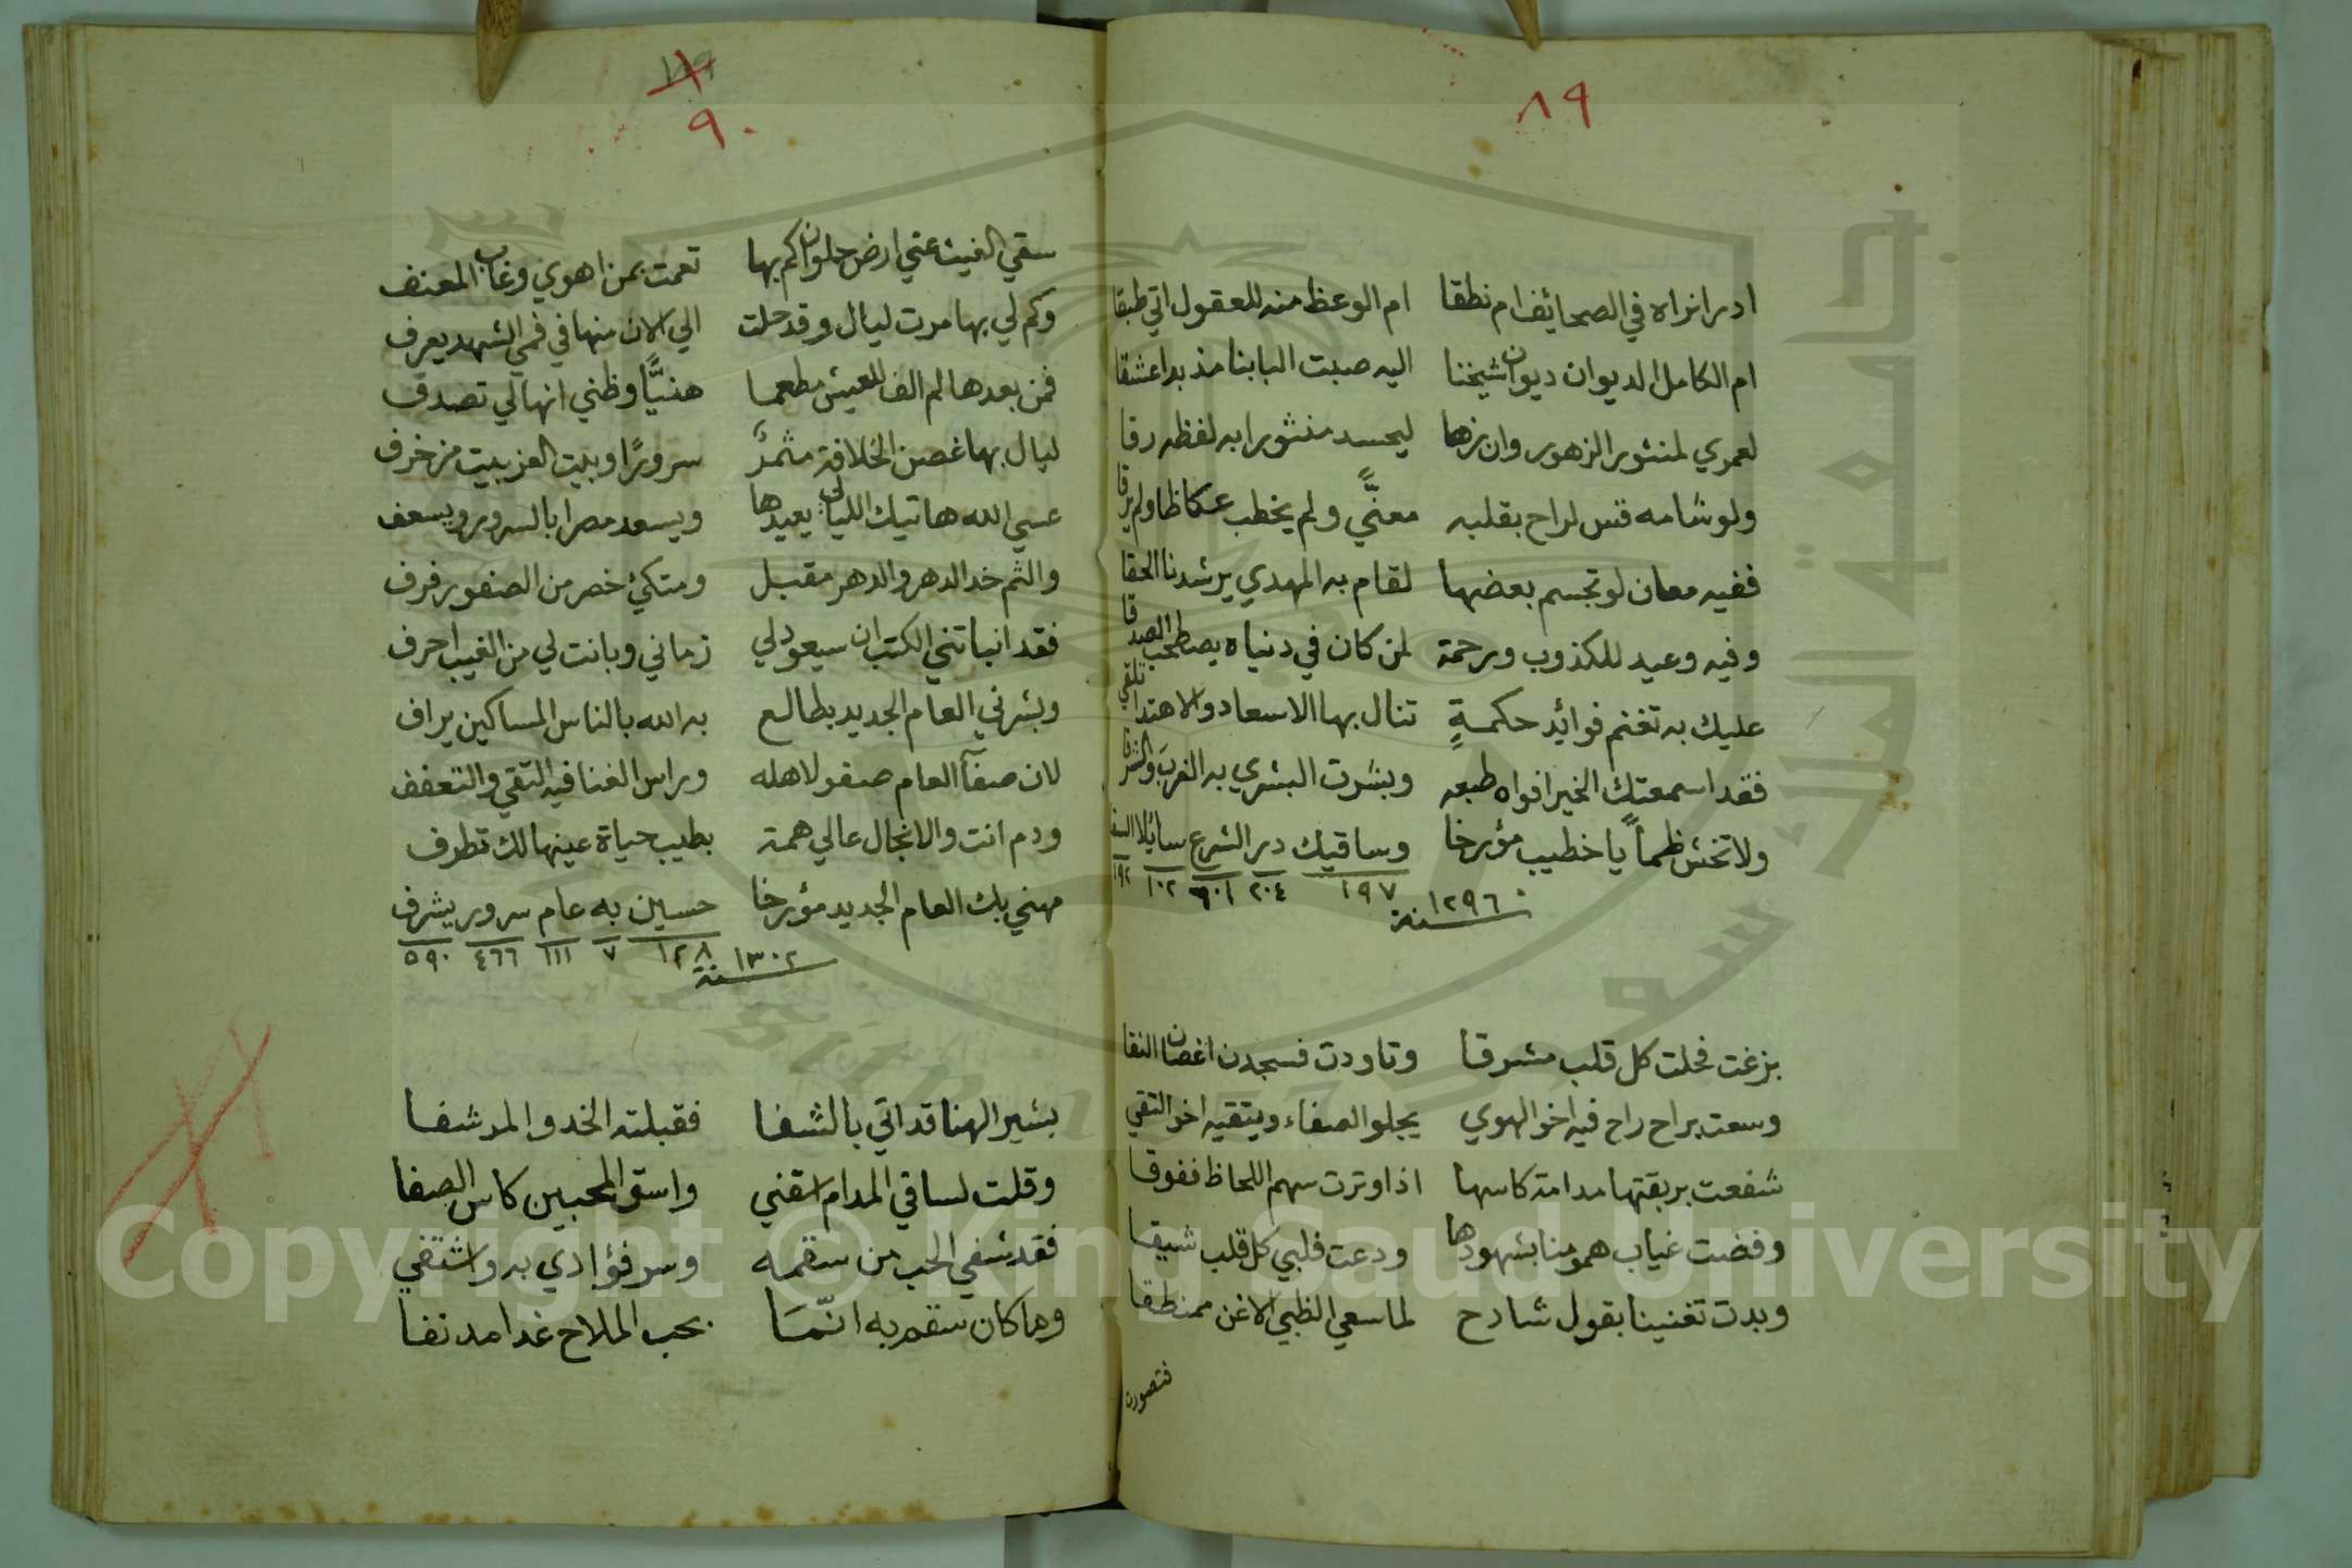 ٨٩
ادر انراه في الصحائف ام نطقا ام الوعظ منه للعقول اتي طبقا
ام الكامل الديوان ديوان شيخنا اليه صبت البابنا مذ بدا عشقا
لعمري لمنثور الزهور وان زها ليحسد منثورا به لفظه رقا
ولو شامه قس لراح بقلبه معنًّي ولم يخطب عكاظا ولم يرقا
ففيه معان لو تجسم بعضها لقام به المهدي يرشدنا الحقا
وفيه وعيد للكذوب ورحمة لمن كان في دنياه يصطحب الصدقا
عليك به تغنم فوائد حكمةٍ تنال بها الاسعاد والاهتدا تلقي
فقد اسمعتك الخير افواه طبعه وبشرت البشري به الغرب والشرقا
ولا تخش ظمأً يا خطيب مؤرخا وساقيك در الشرع سائلا السقا
١٩٧ ٢٠٤ ٦٠١ ١٠٢ ١٩٢
سنة ١٢٩٦
بزغت فخلت كل قلب مشرقا وتاودت فسجدن اغصان النقا
وسعت براح راح فيه اخو الهوي يجلو الصفاء ويتقيه اخو التقي
شفعت بريقتها مدامة كاسها اذ اوترت سهم اللحاظ ففوقا
وفضت غياب همومنا بشهودها ودعت فلبي كل قلب شيقا
وبدت تغنينا بقول شادح لما سعي الظبي الاغن ممنطقا
فتصورت
٩٠
سقي الغيث عني ارض حلوان كم بها نعمت بمن اهوي وغاب المعنف
وكم لي بها مرت ليال وقد حلت الي الان منها في فمي الشهد يعرف
فمن بعدها لم الف للعيش مطعما هنيًّا وظني انها لي تصدف
ليال بها غصن الخلافة مثمرٌ سرورًا وبيت العز بيت مزخرف
عسي الله هاتيك الليالي يعيدها ويسعد مصرا بالسرور ويسعف
والثم خد الدهر والدهر مقبل ومتكئ خصر من الصفو رفرف
فقد انباتني الكتب ان سيعود لي زماني وبانت لي من الغيب احرف
وبشرني العام الجديد بطالع به الله بالناس المساكين يراف
لان صفآ العام صفو لاهله وراس الغنا فيه التقي والتعفف
ودم انت والانجال عالي همة بطيب حياة عينها لك تطرف
مهني بك العام الجديد مؤرخا حسين به عام سرور يشرف
١٢٨ ٧ ١١١ ٤٦٦ ٥٩٠
سنة ١٣٠٢
بشير الهنا قد اتي بالشفا فقبلته الخد والمرشفا
وقلت لساقي المدام اسقني واسق المحبين كاس الصفا
فقد شفي الحب من سقمه وسر فؤادي به واشتفي
وما كان سقم به انّمَا بحب الملاح غدا مدنفا
Copyright © King Saud University